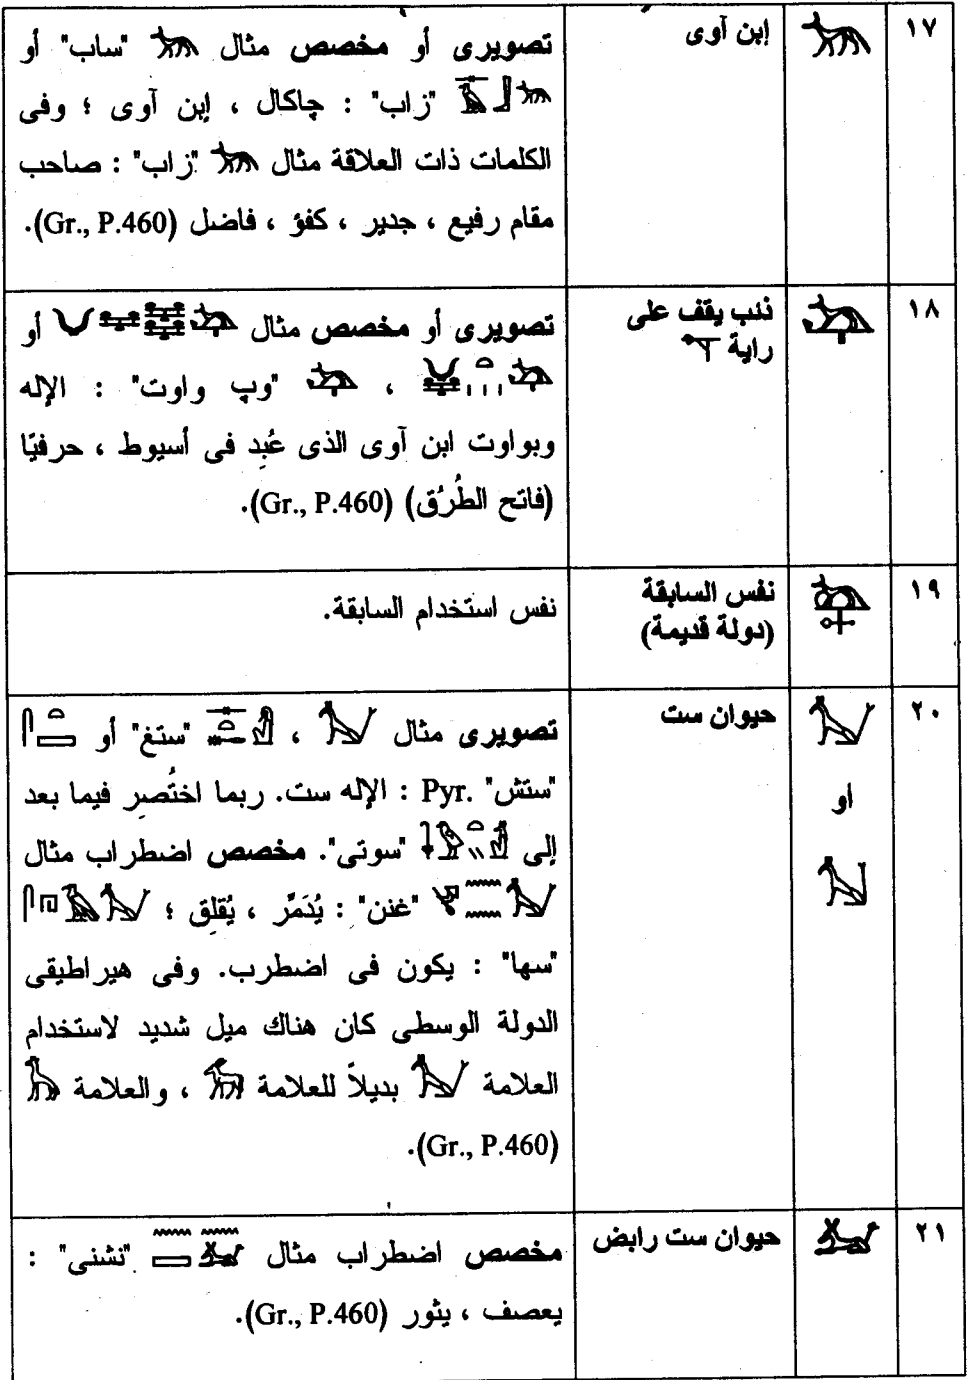 ١٧
إبن آوى
تصويرى أو مخصص مثال "ساب" أو
"زاب" : چاكال ، إبن آوى ؛ وفى
الكلمات ذات العلاقة مثال "زاب" : صاحب
مقام رفيع ، جدير ، كفؤ ، فاضل (Gr., P.460).
١٨
ذئب يقف على
راية
تصويرى أو مخصص مثال أو
، "وپ واوت" : الإله
وبواوت ابن آوى الذى عُبِد فى أسيوط ، حرفيًا
(فاتح الطُرُق) (Gr., P.460).
١٩
نفس السابقة
(دولة قديمة)
نفس استخدام السابقة.
٢٠
أو
حيوان ست
تصويرى مثال ، "ستغ" أو
"ستش" Pyr. : الإله ست. ربما اختُصِر فيما بعد
إلى "سوتى". مخصص اضطراب مثال
"غنن" : يُدَمَّر ، يُقلِق ؛
"سها" : يكون فى اضطرب. وفى هيراطيقى
الدولة الوسطى كان هناك ميل شديد لاستخدام
العلامة بديلاً للعلامة ، والعلامة
(Gr., P.460).
٢١
حيوان ست رابض
مخصص اضطراب مثال "نشنى" :
يعصف ، يثور (Gr., P.460).